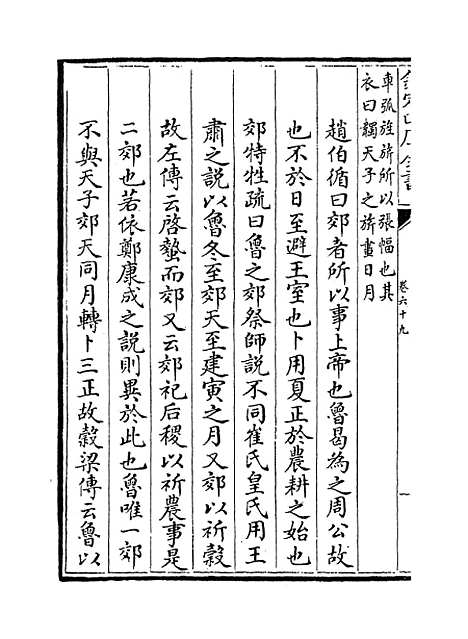 欽定四庫全書
卷六十九
車弧旌旂所以張幅也其
衣曰韣天子之旂畫日月
趙伯循曰郊者所以事上帝也魯曷為之周公故
也不於日至避王室也卜用夏正於農耕之始也
郊特牲疏曰魯之郊祭師説不同崔氏皇氏用王
肅之説以魯冬至郊天至建寅之月又郊以祈穀
故左傳云啓蟄而郊又云郊祀后稷以祈農事是
二郊也若依鄭康成之説則異於此也魯唯一郊
不與天子郊天同月轉卜三正故穀梁傳云魯以